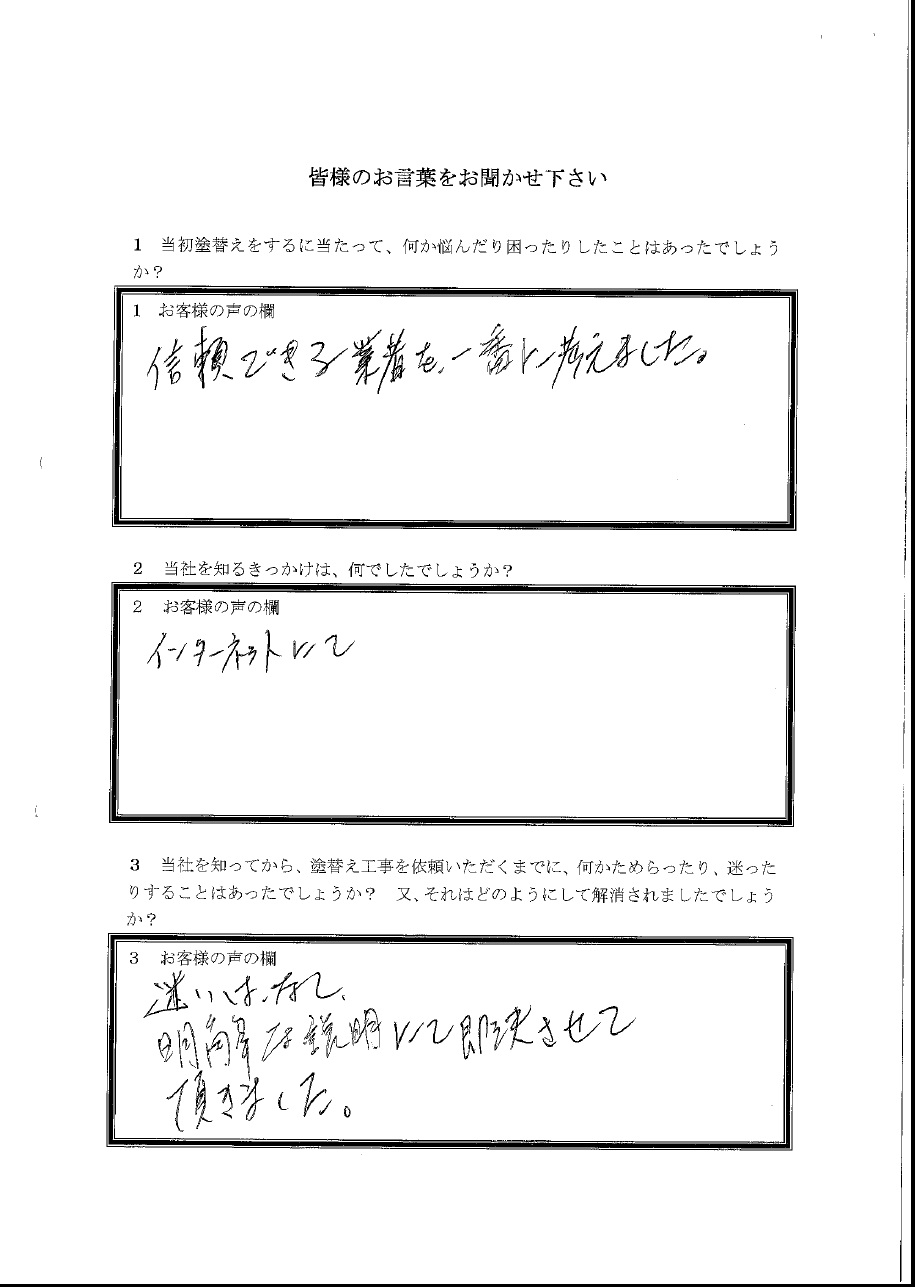 皆様のお言葉をお聞かせ下さい
1　当初塗替えをするに当たって、何か悩んだり困ったりしたことはあったでしょう
か？
1　お客様の声の欄
信頼できる業者を、一番に考えました。
2　当社を知るきっかけは、何でしたでしょうか？
2　お客様の声の欄
インターネットにて
3　当社を知ってから、塗替え工事を依頼いただくまでに、何かためらったり、迷った
りすることはあったでしょうか？　又、それはどのようにして解消されましたでしょう
か？
3　お客様の声の欄
迷いは、なし、
明解な説明にて即決させて
頂きました。